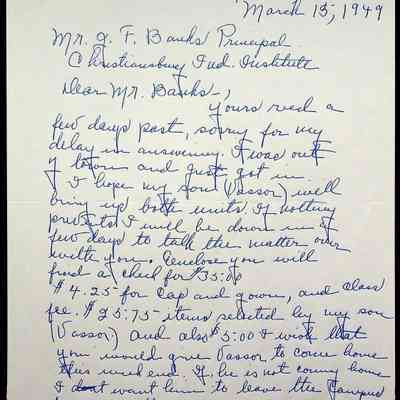 March 15, 1949
Mr. J. F. Banks Principal
Christiansburg Ind. Institute
Dear Mr. Banks,
Yours recd a
few days past, sorry for my
delay in answering. I was out
of town and just got in.
I hope my son (Vassor) will
bring up both units. If nothing
prevents I will be down in a
few days to talk the matter over
with you. Enclose you will
find a check for $35.00
$4.25 for cap and gown, and class
fee. $25.75 items selected by my son
(Vassor) and also $5.00 I wish that
you would give Vassor to come home
this week end. If he is not coming home
I dont want him to leave the Campus